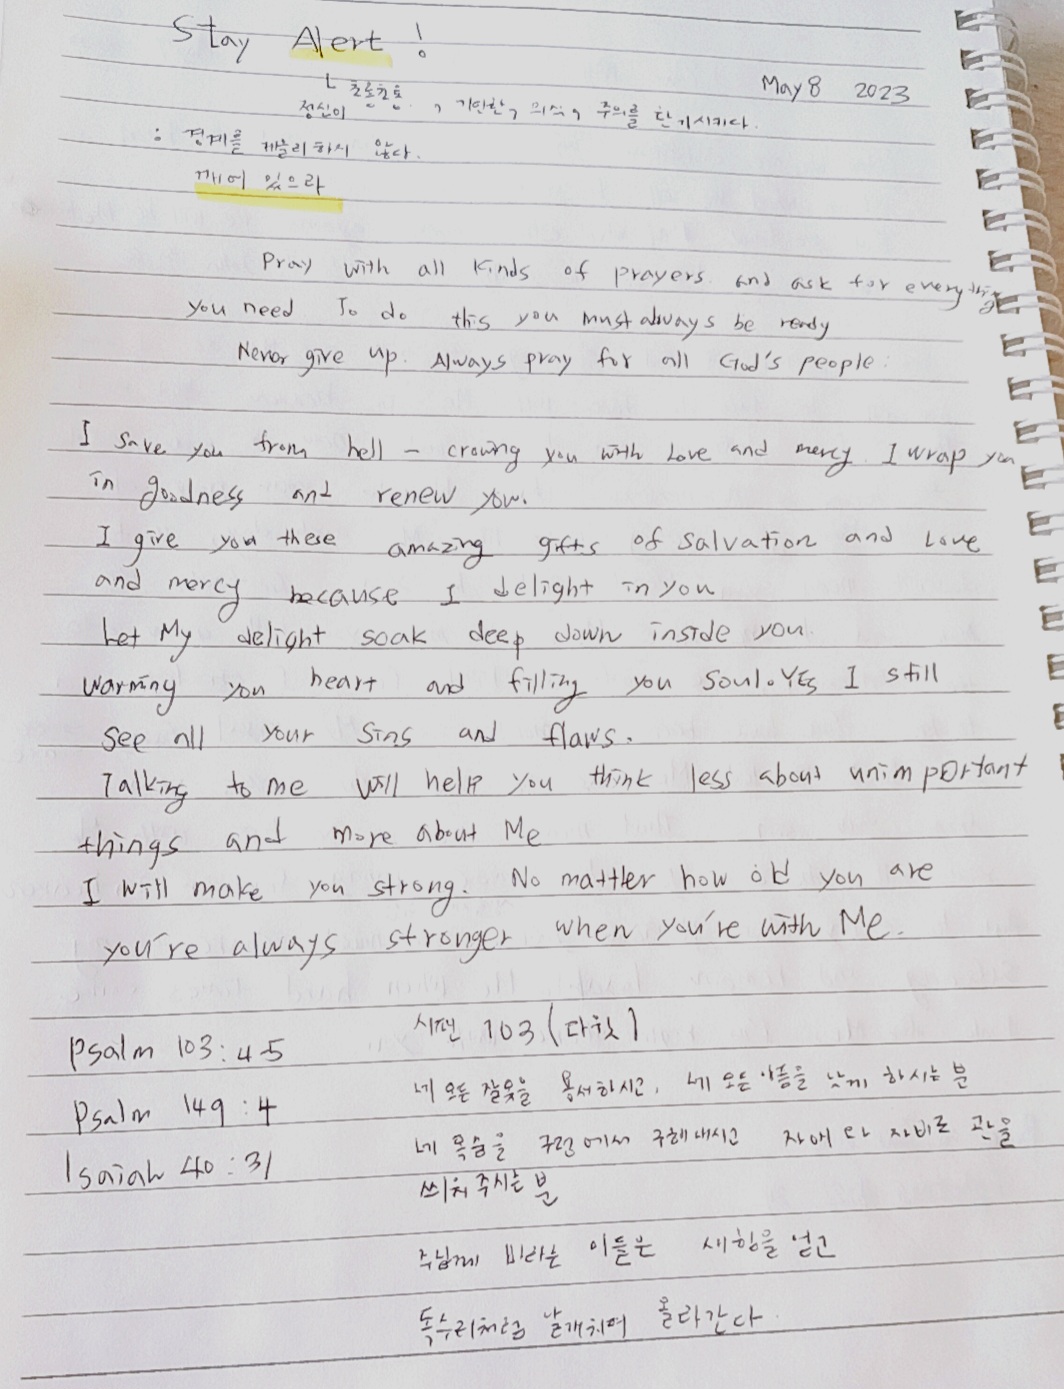 Stay Alert !
May 8 2023
└ 초롱초롱
정신이 , 기민한, 의식, 주의를 환기시키다.
: 경계를 게을리하지 않다.
깨어 있으라
Pray with all kinds of prayers and ask for everything
you need To do this you must always be ready
Never give up. Always pray for all God's people.
I save you from hell - crowing you with Love and mercy. I wrap you
in goodness and renew you.
I give you these amazing gifts of salvation and Love
and mercy because I delight in you
Let My delight soak deep down inside you.
Warming you heart and filling you soul. YEs I still
See all your Sins and flaws.
Talking to me will help you think less about unimportant
things and more about Me
I will make you strong. No mattler how old you are
you're always stronger when you're with Me.
Psalm 103:4-5
Psalm 149:4
Isaiah 40:31
시편 103 (다윗)
네 모든 잘못을 용서하시고, 네 모든 아픔을 낫게 하시는 분
네 목숨을 구렁에서 구해내시고 자애와 자비로 관을
씌워 주시는 분
주님께 바라는 이들은 새 힘을 얻고
독수리처럼 날개치며 올라간다.